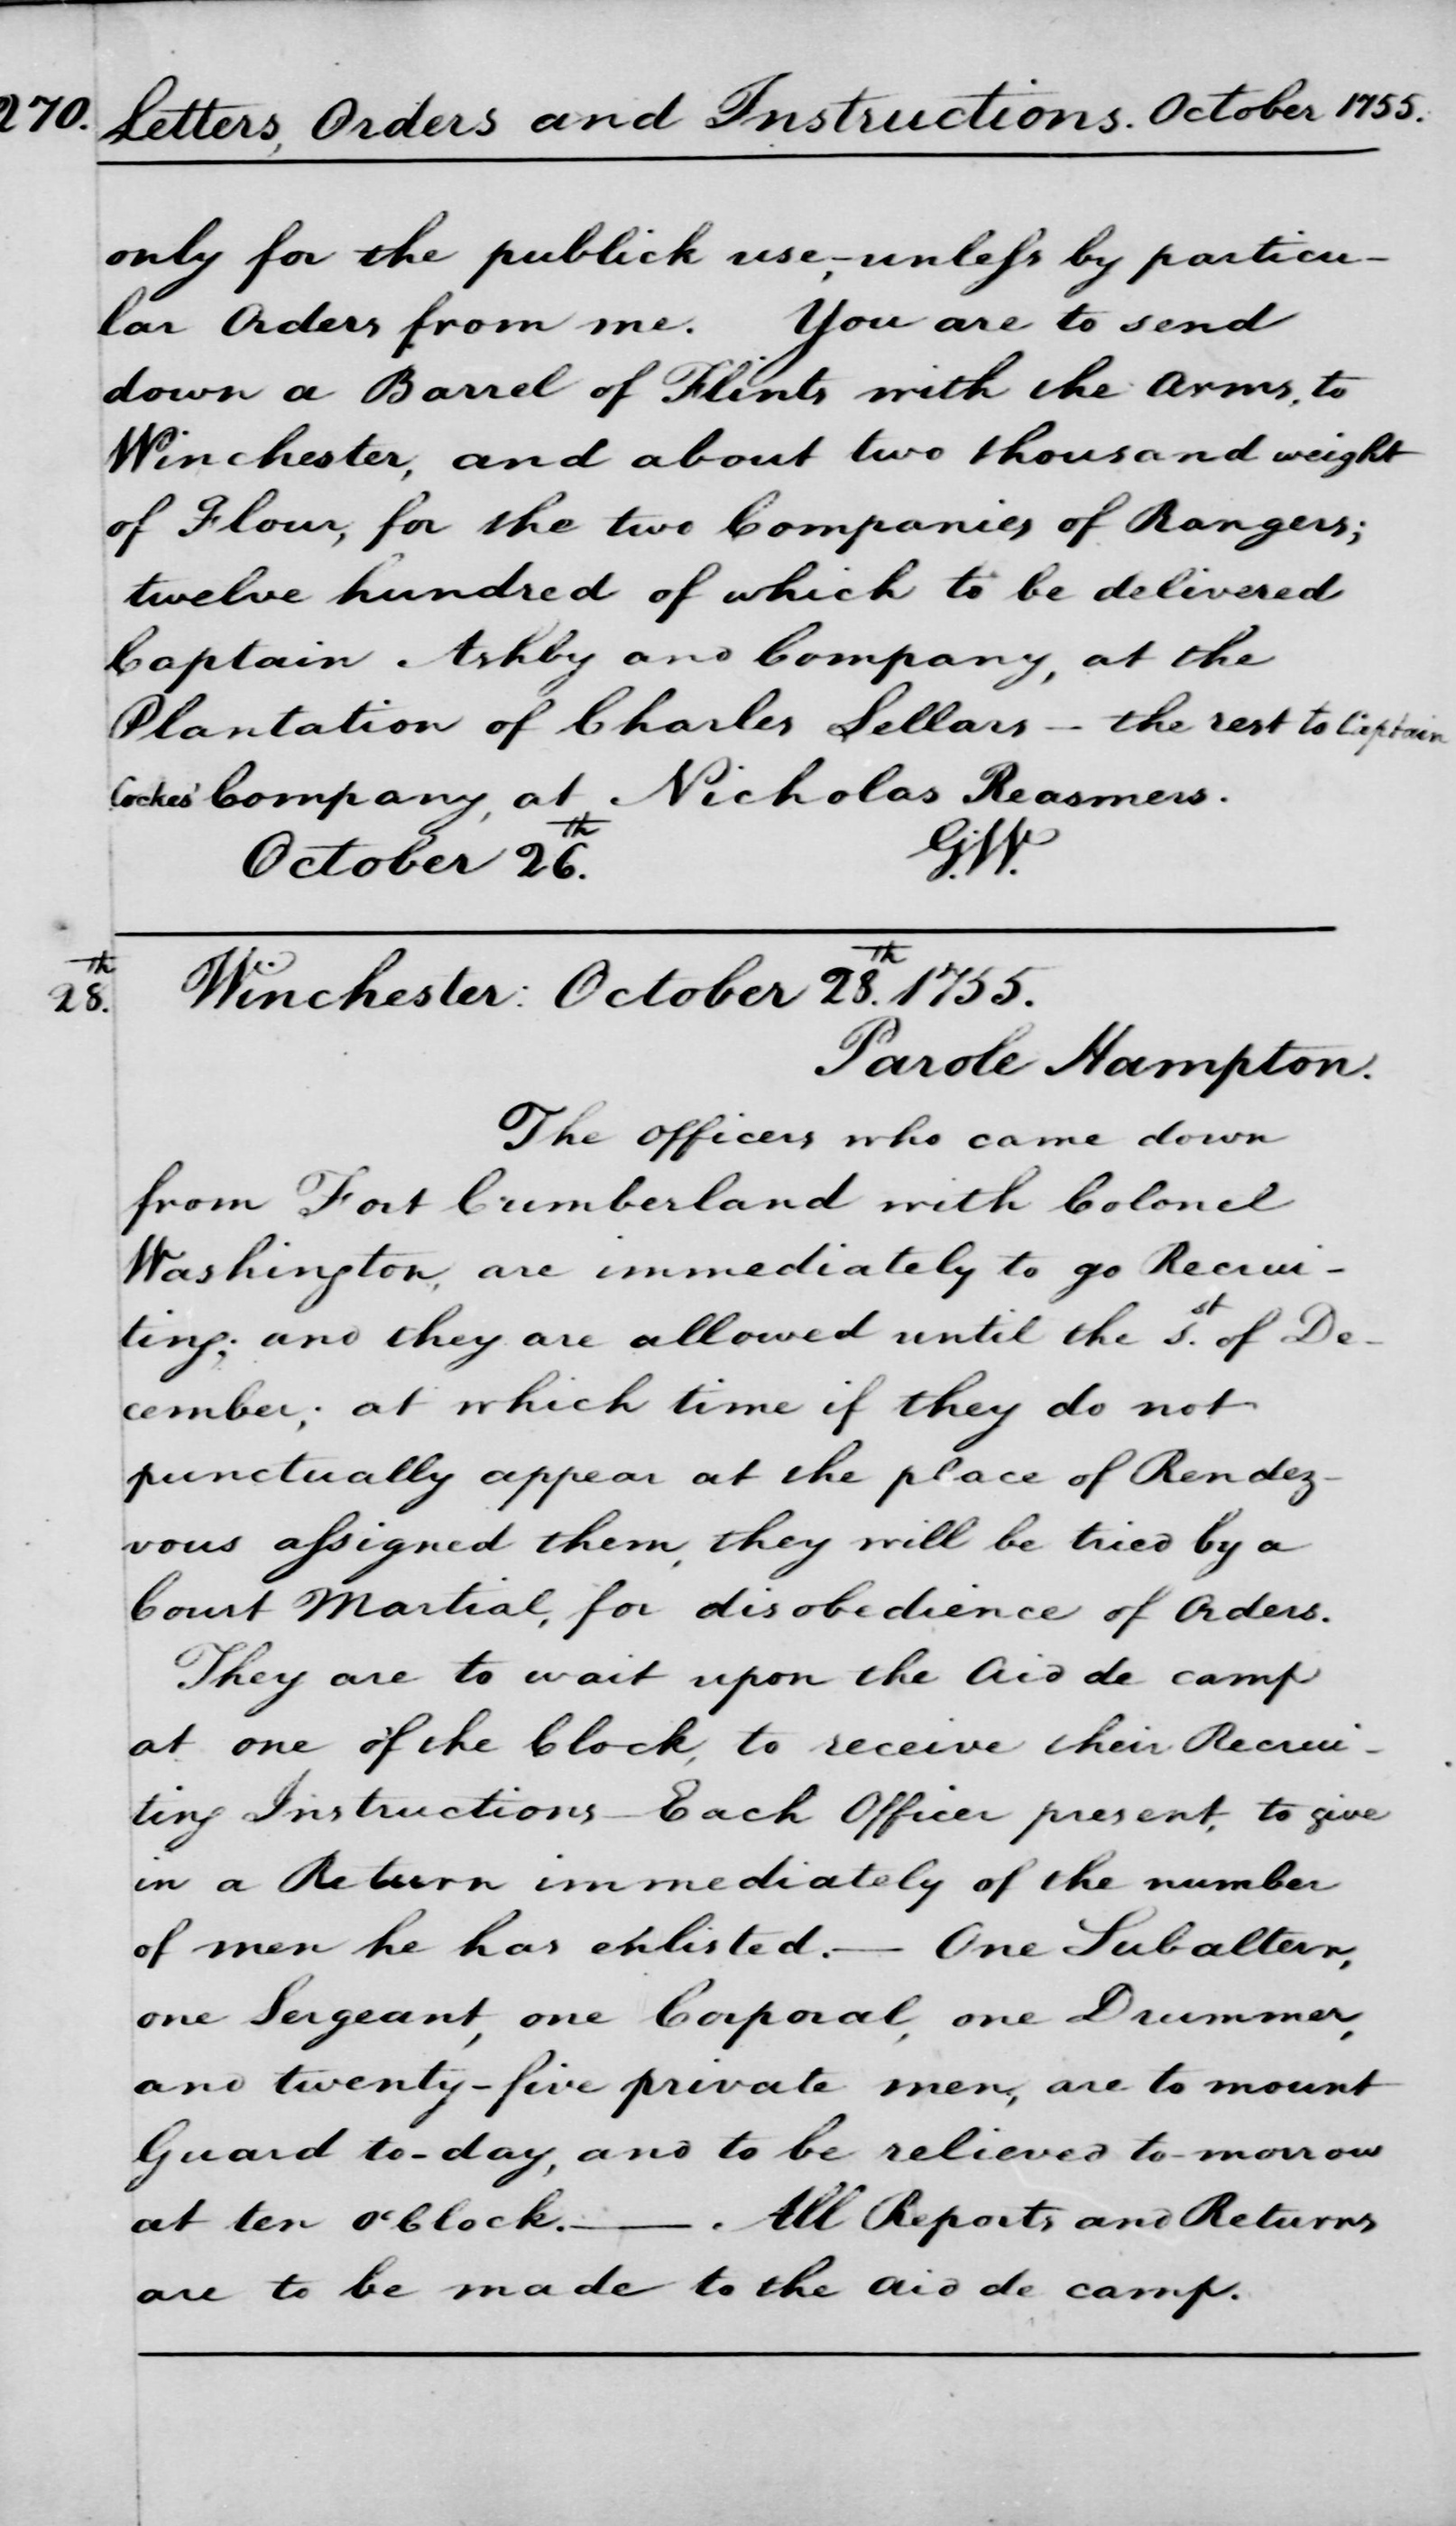 270. Letters, Orders and Instructions. October 1755.
only for the publick use;-unless by particu-
lar Orders from me. You are to send
down a Barrel of Flints with the Arms, to
Winchester, and about two thousand weight
of Flour, for the two Companies of Rangers;
twelve hundred of which to be delivered
Captain Ashby and Company, at the
Plantation of Charles Sellars - the rest to Captain
Cockes' Company, at Nicholas Reasmers.
October 26th. G:W.
28th. Winchester: October 28th. 1755.
Parole Hampton.
The officers who came down
from Fort Cumberland with Colonel
Washington, are immediately to go Recrui-
ting; and they are allowed until the 1st. of De-
cember; at which time if they do not
punctually appear at the place of Rendez-
vous assigned them, they will be tried by a
Court Martial, for disobedience of Orders.
They are to wait upon the Aid de camp
at one of the Clock, to receive their Recrui-
ting Instructions - Each Officer present, to give
in a Return immediately of the number
of men he has enlisted. - One Subaltern,
one Sergeant, one Corporal, one Drummer,
and twenty-five private men, are to mount
Guard to-day, and to be relieved to-morrow
at ten o'Clock. - . All Reports and Returns
are to be made to the aid de camp.